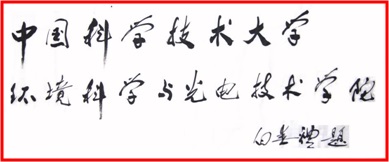 中国科学技术大学
环境科学与光电技术学院
白春禮題